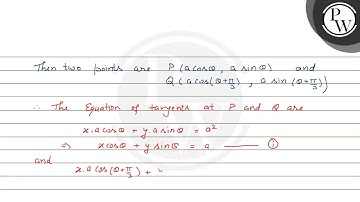 PW
Then two points are P(a cosθ, a sinθ) and
Q(a cos(θ+π/3), a sin(θ+π/3))
∴ The Equation of tangents at P and Q are
x.a cosθ + y.a sinθ = a²
⇒ x cosθ + y sinθ = a —— ①
and
x.a cos(θ+π/3) +